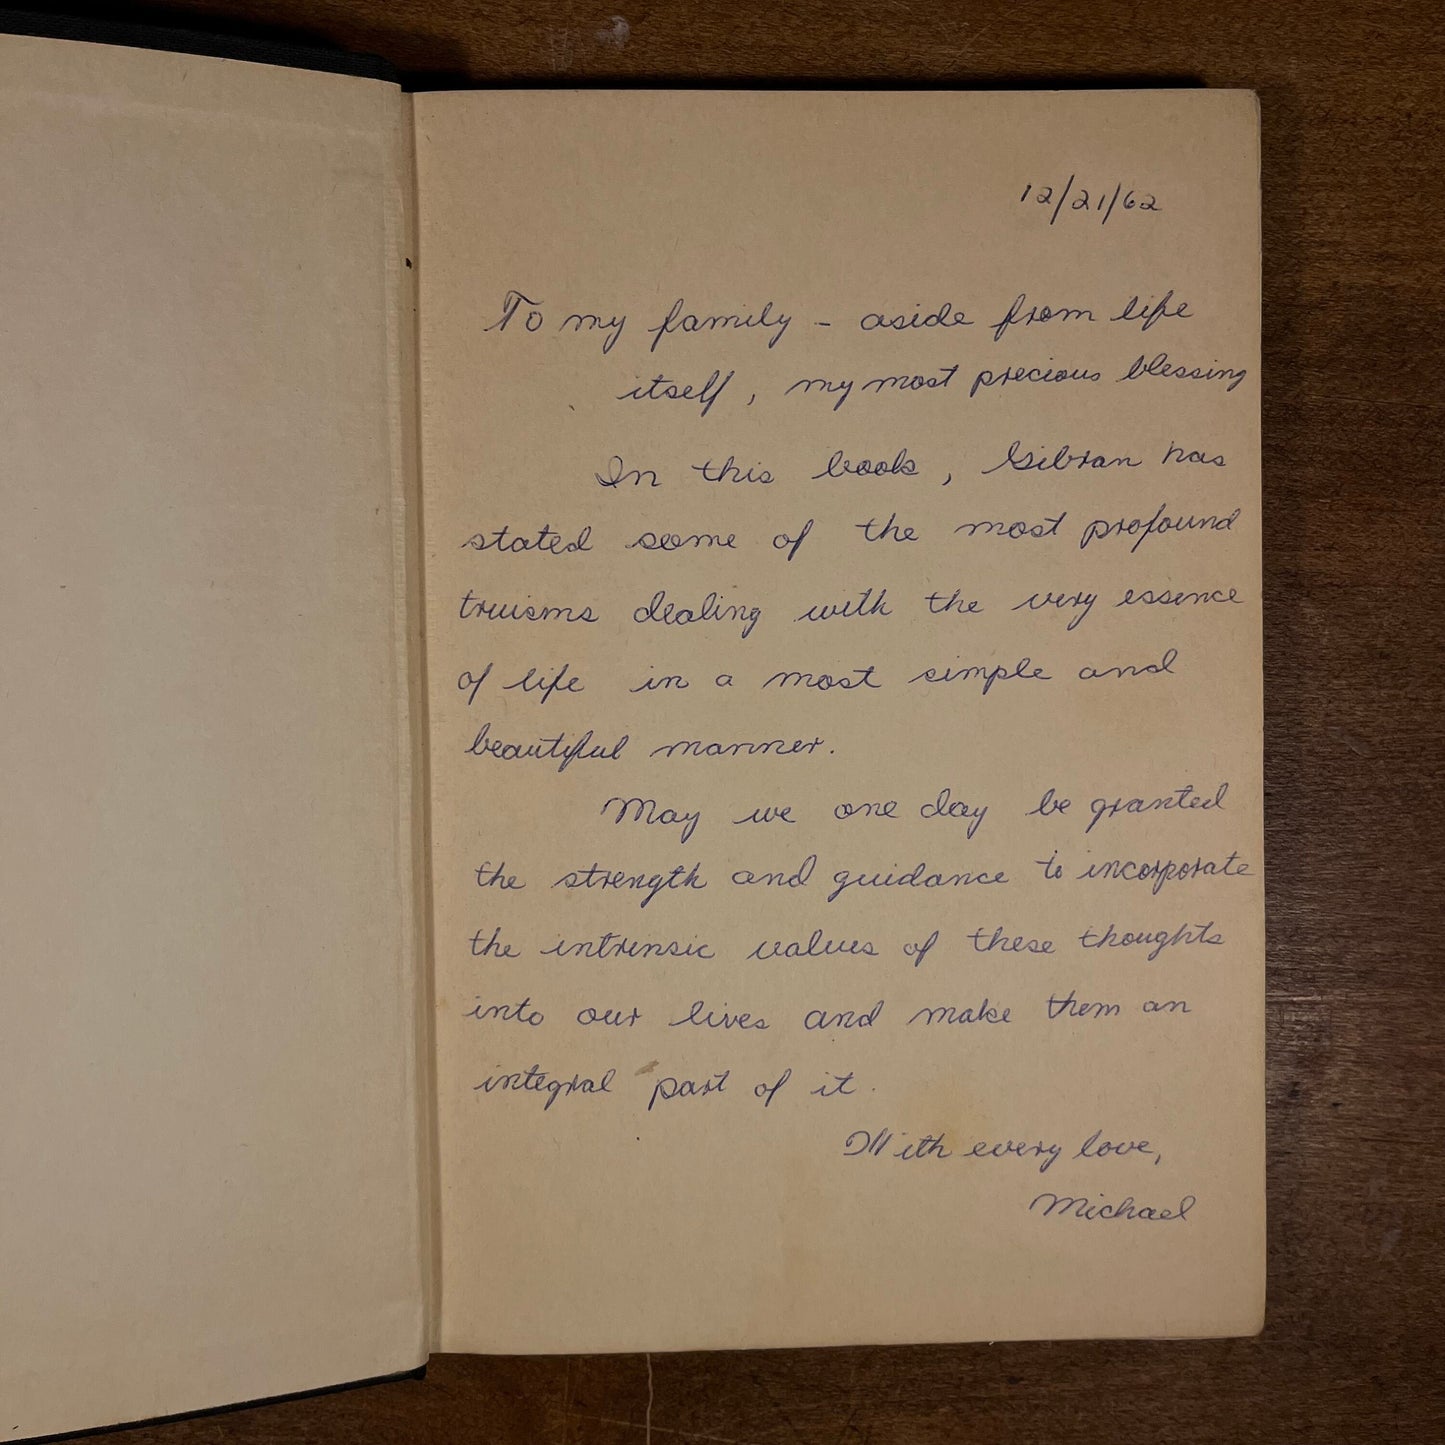 12/21/62
To my family - aside from life
itself, my most precious blessing
In this book, Gibran has
stated some of the most profound
truisms dealing with the very essence
of life in a most simple and
beautiful manner.
May we one day be granted
the strength and guidance to incorporate
the intrinsic values of these thoughts
into our lives and make them an
integral part of it.
With every love,
Michael